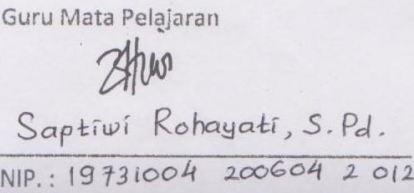 Guru Mata Pelajaran
Saptiwi Rohayati, S.Pd.
NIP. : 19731004 200604 2 012